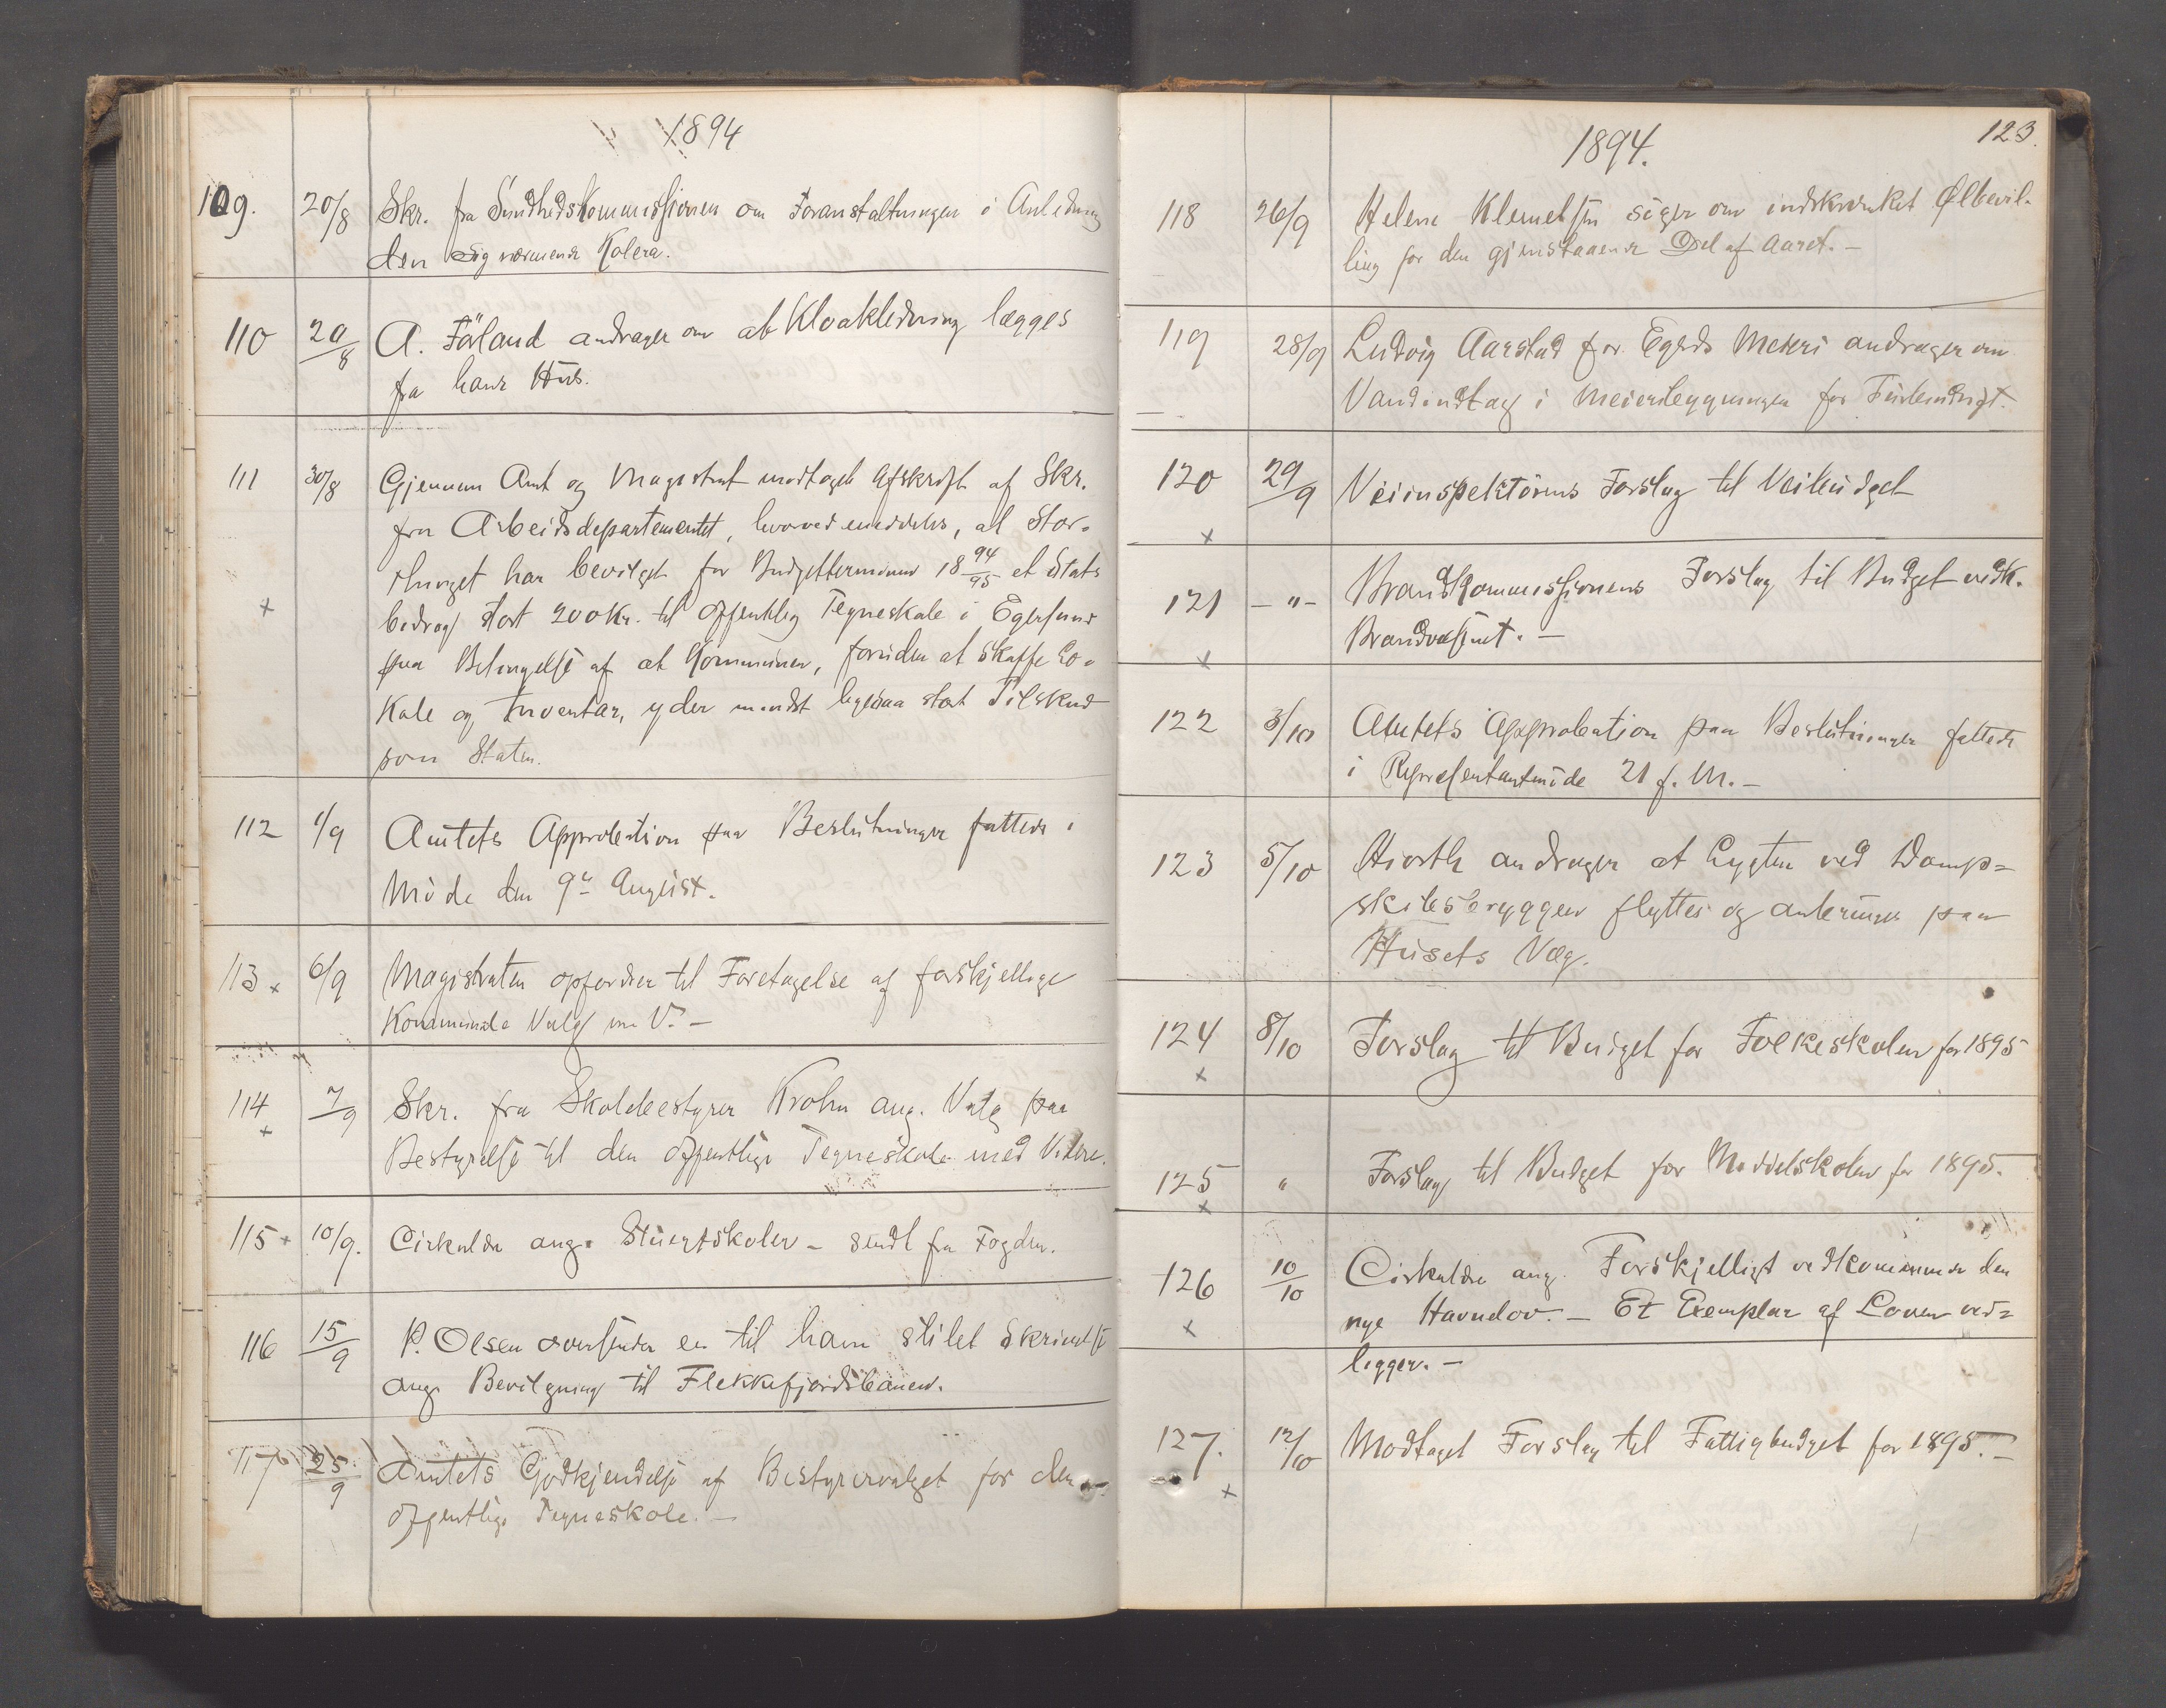 1894
109. 20/8 Skr. fra Sundhedskommissionen om Foranstaltninger i Anledning
den sig nærmende Kolera.
110 20/8 A. Föland andrager om at Kloakledning lægges
fra hans Hus.
111 30/8 Gjennem Amt og Magistrat modtaget Afskrift af Skr.
fra Arbeidsdepartementet, hvorved meddeles, at Stor-
thinget har bevilget for Budgetterminen 18 94/95 et Stats
bidrag stort 200 Kr. til offentlig Tegneskole i Egersund
paa Betingelse af at Kommunen, foruden at skaffe Lo-
kale og Inventar, yder mindst ligesaa stort Tilskud
som Staten.
112 1/9 Amtets Approbation paa Beslutninger fattede i
Möde den 9de August.
113 x 6/9 Magistraten opfordrer til Foretagelse af forskjellige
Kommunale Valg m. V. –
114 x 7/9 Skr. fra Skolebestyrer Krohn ang. Valg paa
Bestyrelse til den offentlige Tegneskole med Videre.
115 + 10/9. Cirkulære ang. – sendt fra Fogden.
116 15/9 P. Olsen oversender en til ham stilet Skrivelse
ang. Bevilgning til Flekkefjordsbanen.
117 25/9 Amtets Godkjendelse af Bestyrervalget for den
offentlige Tegneskole. –
1894. 123.
118 26/9 Helene Klemetsen söger om indskrænket Ølbevil-
ling for den gjenstaaende Del af Aaret. –
119 28/9 Ludvig Aarstad for Egrds Meieri andrager om
Vandindtag i Meieribygningen for
120 x 29/9 Veiinspektörens Forslag til Veibudget
121 x – " – Brandkommissionens Forslag til Budget vedk.
Brandvæsenet. –
122 3/10 Amtets Approbation paa Beslutninger fattede
i Repræsentantmöde 21 f. M. –
123 5/10 Hiorth andrager at Lygten ved Damp-
skibsbryggen flyttes og anbringes paa
Husets Væg.
124 x 8/10 Forslag til Budget for Folkeskolen for 1895
125 x " Forslag til Budget for Middelskolen for 1895.
126 x 10/10 Cirkulære ang. Forskjelligt vedkommende den
nye Havnelov. – Et Exemplar af Loven ved-
ligger. –
127. x 12/10 Modtaget Forslag til Fattigbudget for 1895. –